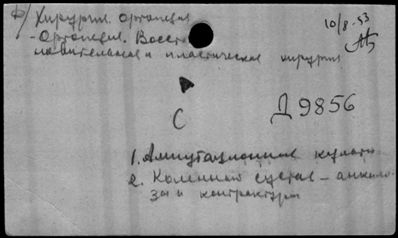 б/ Хирургия. Ортопедия
10/8-53
- Ортопедия. Восста
новительная и пластическая хирургия
С
Д 9856
1. Ампутационные культи
2. Коленный сустав - анкило
зы и контрактуры